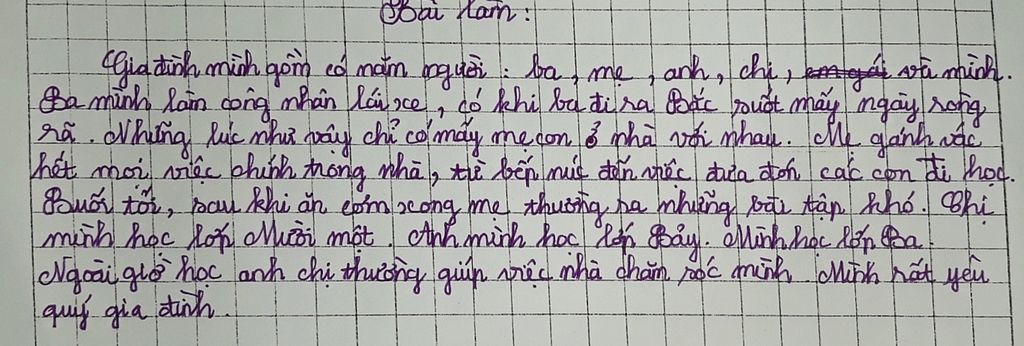 Bài làm:
Gia đình mình gồm có năm người: ba, mẹ, anh, chị, em gái và mình.
Ba mình làm công nhân lái xe, có khi ba đi ra Bắc suốt mấy ngày ròng
rã. Những lúc như vậy chỉ có mấy mẹ con ở nhà với nhau. Mẹ gánh vác
hết mọi việc chính trong nhà, từ bếp núc đến việc đưa đón các con đi học.
Buổi tối, sau khi ăn cơm xong mẹ thường ra những bài tập khó. Chị
mình học lớp Mười một. Anh mình học lớp Bảy. Mình học lớp Ba.
Ngoài giờ học anh chị thường giúp việc nhà chăm sóc mình. Mình rất yêu
quý gia đình.